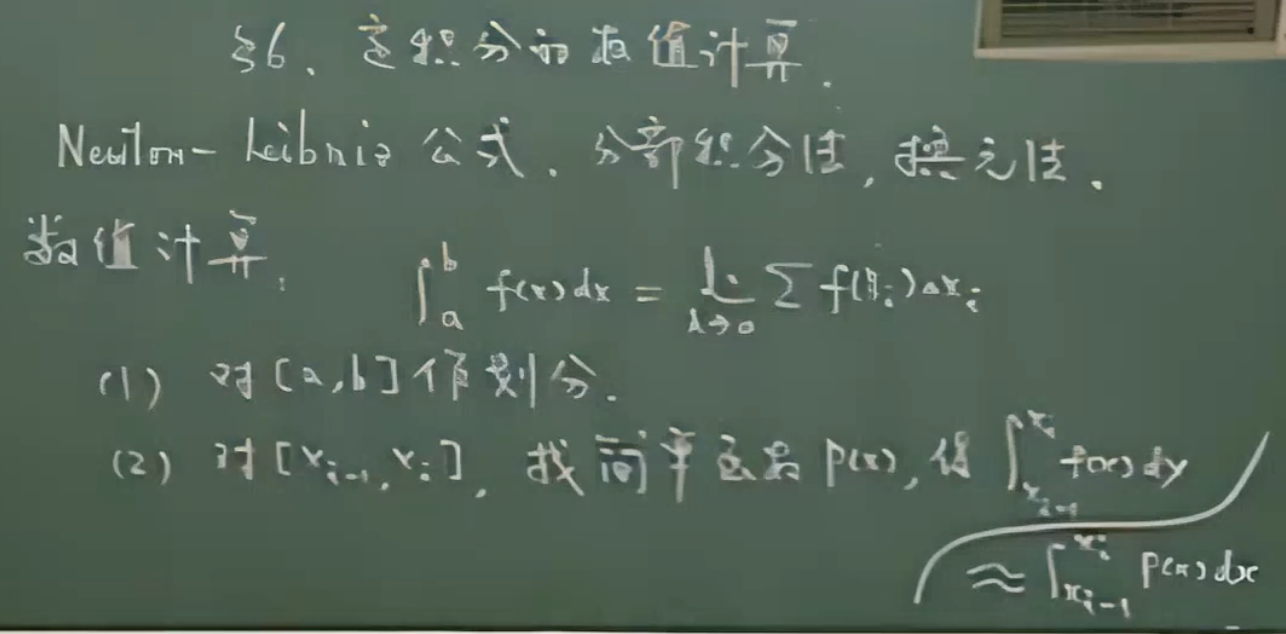 §6. 定积分的数值计算.
Newton-Leibniz 公式. 分部积分法, 换元法.
数值计算. ∫_a^b f(x)dx = lim_{λ→0} Σ f(ξ_i)Δx_i
(1) 对[a,b]作划分.
(2) 对[x_{i-1}, x_i], 找简单函数 p(x), 使 ∫_{x_{i-1}}^{x_i} f(x)dx
≈ ∫_{x_{i-1}}^{x_i} p(x)dx